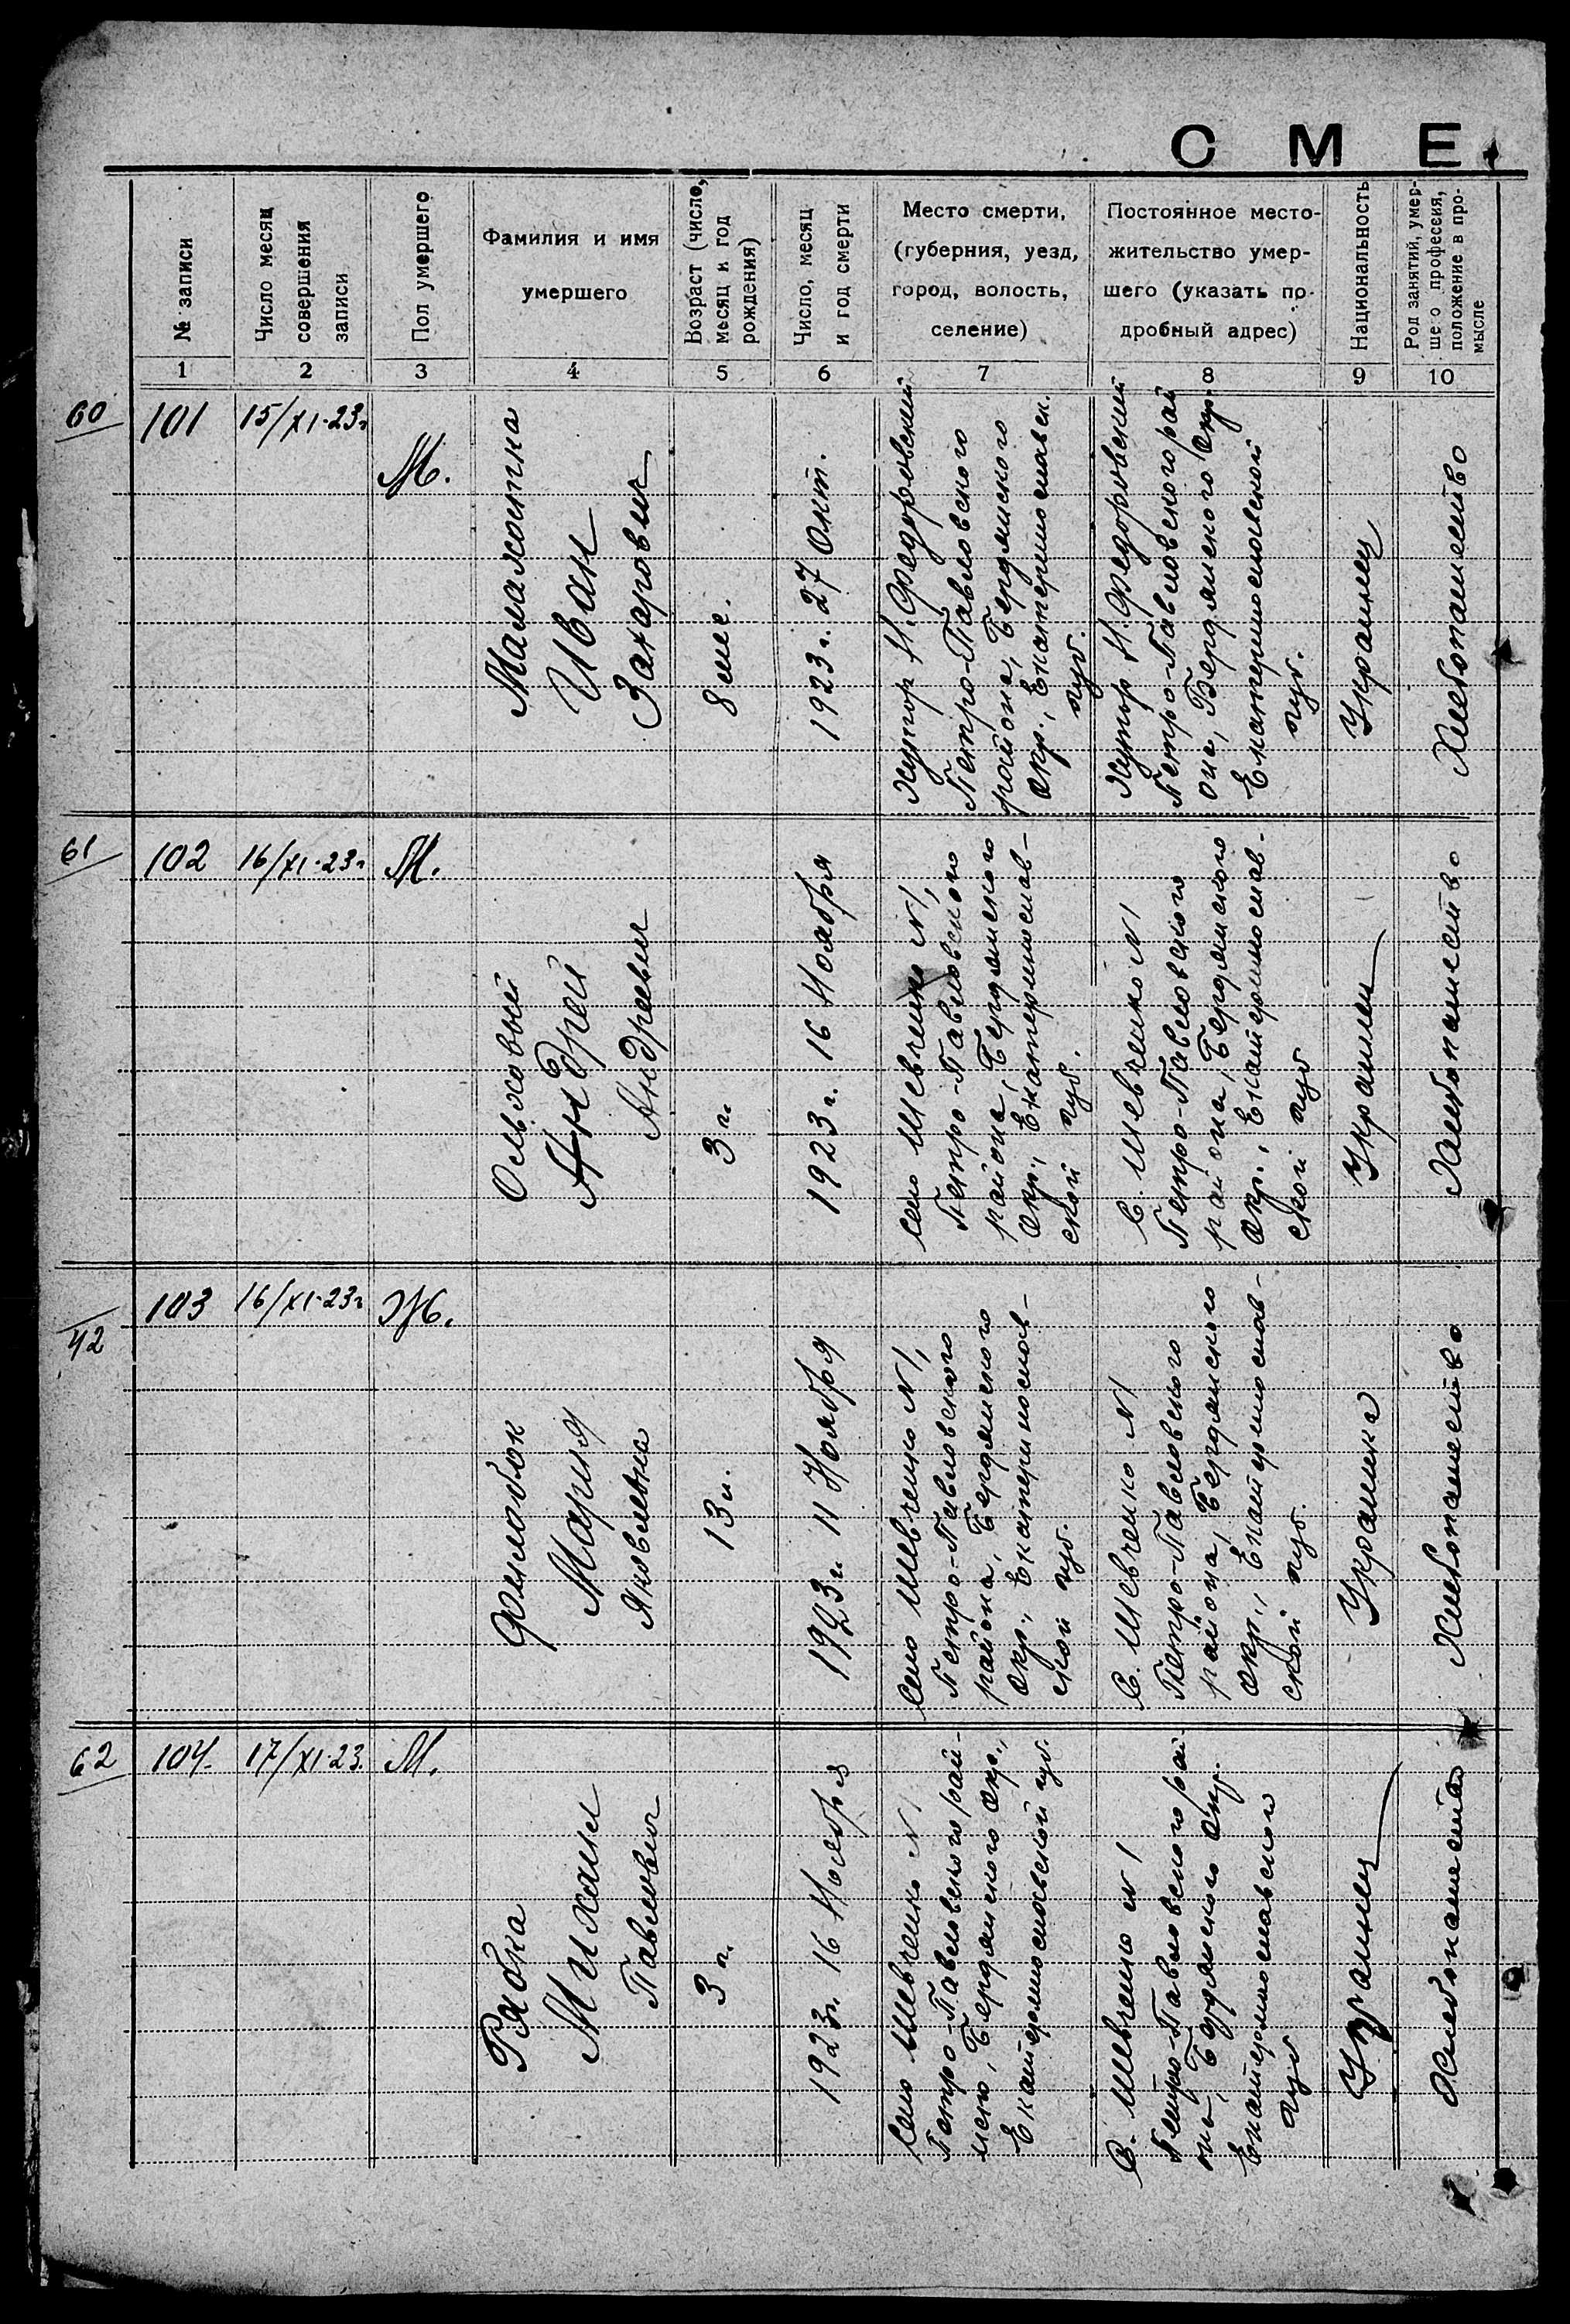 СМЕ
№ записи
Число месяц
совершения
записи
Пол умершего
Фамилия и имя
умершего
Возраст (число,
месяц и год
рождения)
Число, месяц
и год смерти
Место смерти,
(губерния, уезд,
город, волость,
селение)
Постоянное место-
жительство умер-
шего (указать по-
дробный адрес)
Национальность
Род занятий, умер-
ше о профессия,
положение в про-
мысле
1 2 3 4 5 6 7 8 9 10
60
101
15/XI-23г
М.
Малахатка
Иван
Захарович
8 мес.
1923 г. 27 Окт.
Хутор Н. Федоровский
Петро-Павловского
района, Бердянского
Окр., Екатеринославск.
губ.
Хутор Н. Федоровский
Петро-Павловского рай
она, Бердянского Окр.
Екатеринославской
губ.
Украинец
Хлебопашество
61
102
16/XI-23г
М.
Ольховый
Андрей
Андреевич
3 г.
1923 г. 16 Ноября
Село Шевченко N1,
Петро-Павловского
района, Бердянского
Окр., Екатеринослав-
ской губ.
С. Шевченко N1
Петро-Павловского
района, Бердянского
Окр., Екатеринослав-
ской губ
Украинец
Хлебопашество
42
103
16/XI-23г
Ж.
Мария
Яковлевна
1923 г. 11 Ноября
Село Шевченко N1,
Петро-Павловского
района, Бердянского
Окр., Екатеринослав-
ской губ.
С. Шевченко N1
Петро-Павловского
района, Бердянского
Окр., Екатеринослав-
ской губ.
Украинка
Хлебопашество
62
104.
17/XI-23.
М.
Рябка
Михаил
Павлович
3 г.
1923г. 16 Ноября
Село Шевченко N1
Петро-Павловского рай-
Бердянского Окр.,
Екатеринославской губ.
С. Шевченко N1
Петро-Павловского рай
она, Бердянского Окр.
Екатеринославской
губ
Украинец
Хлебопашество